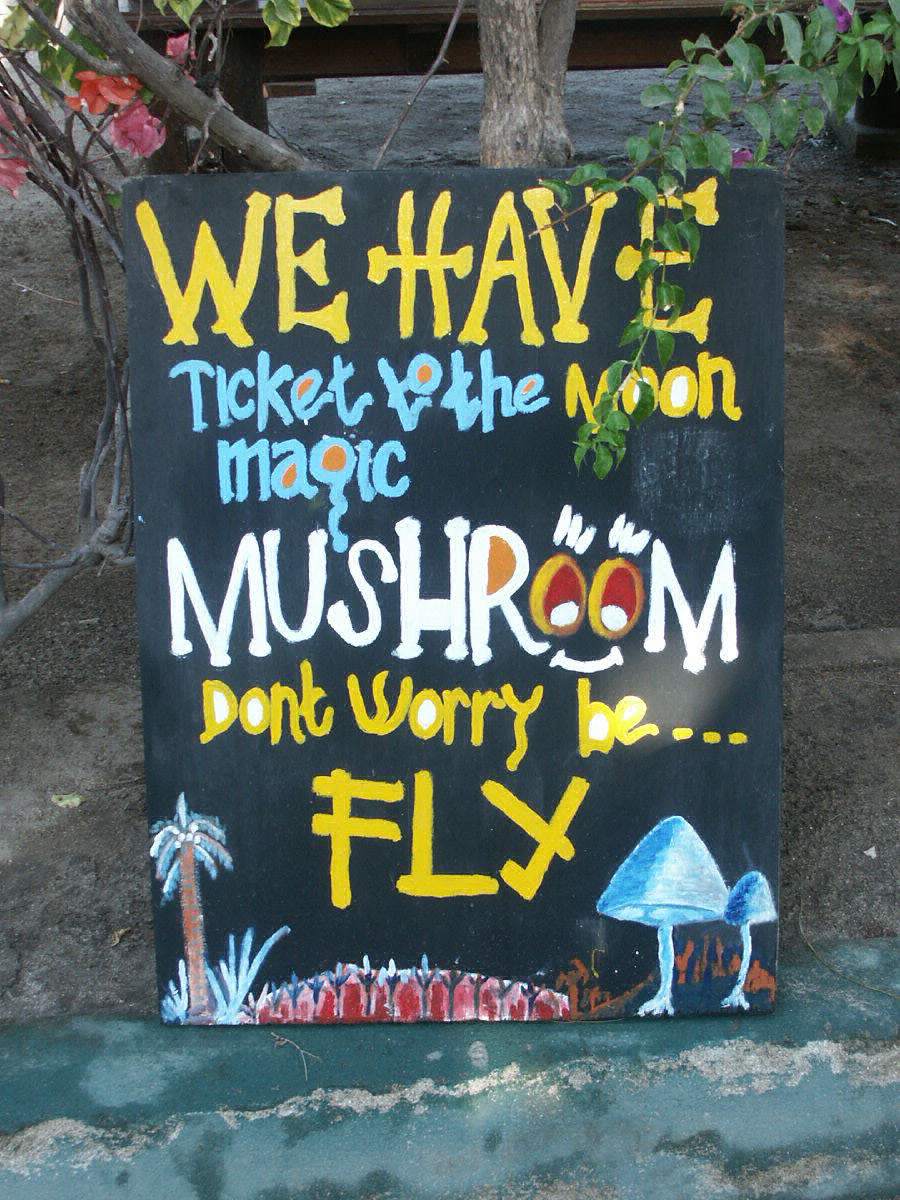 WE HAVE
Ticket to the Moon
magic
MUSHROOM
Dont Worry be...
FLY